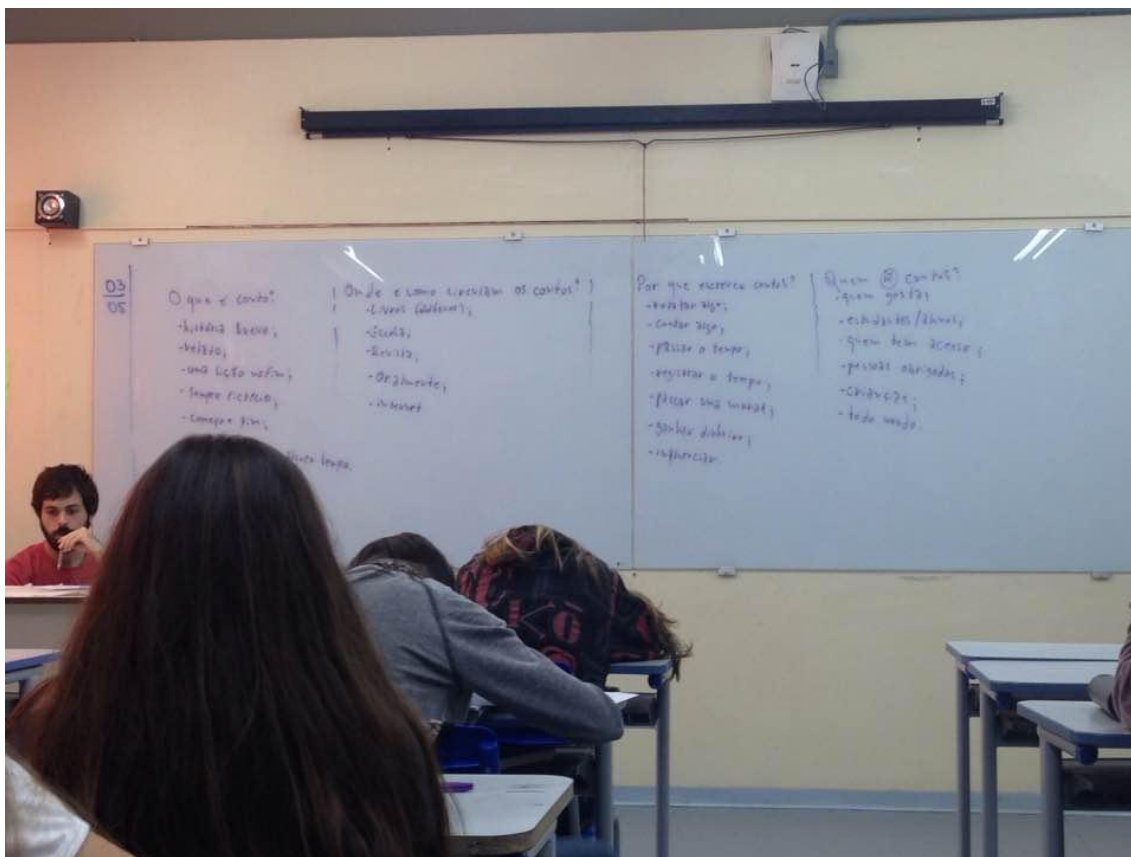 03
05
O que é conto?
- história breve;
- relato;
- uma lição no fim;
- sempre fictício;
- começo e fim;
tempo.
Onde e como circulam os contos?
- Livros
- Escola;
- Revista;
- Oralmente;
- internet
Por que escrever contos?
- relatar algo;
- contar algo;
- passar o tempo;
- registrar o tempo;
- passar uma
- ganhar dinheiro;
- influenciar.
Quem contos?
- quem gosta;
- estudantes/alunos;
- quem tem acesso;
- pessoas obrigadas;
- crianças;
- todo mundo.